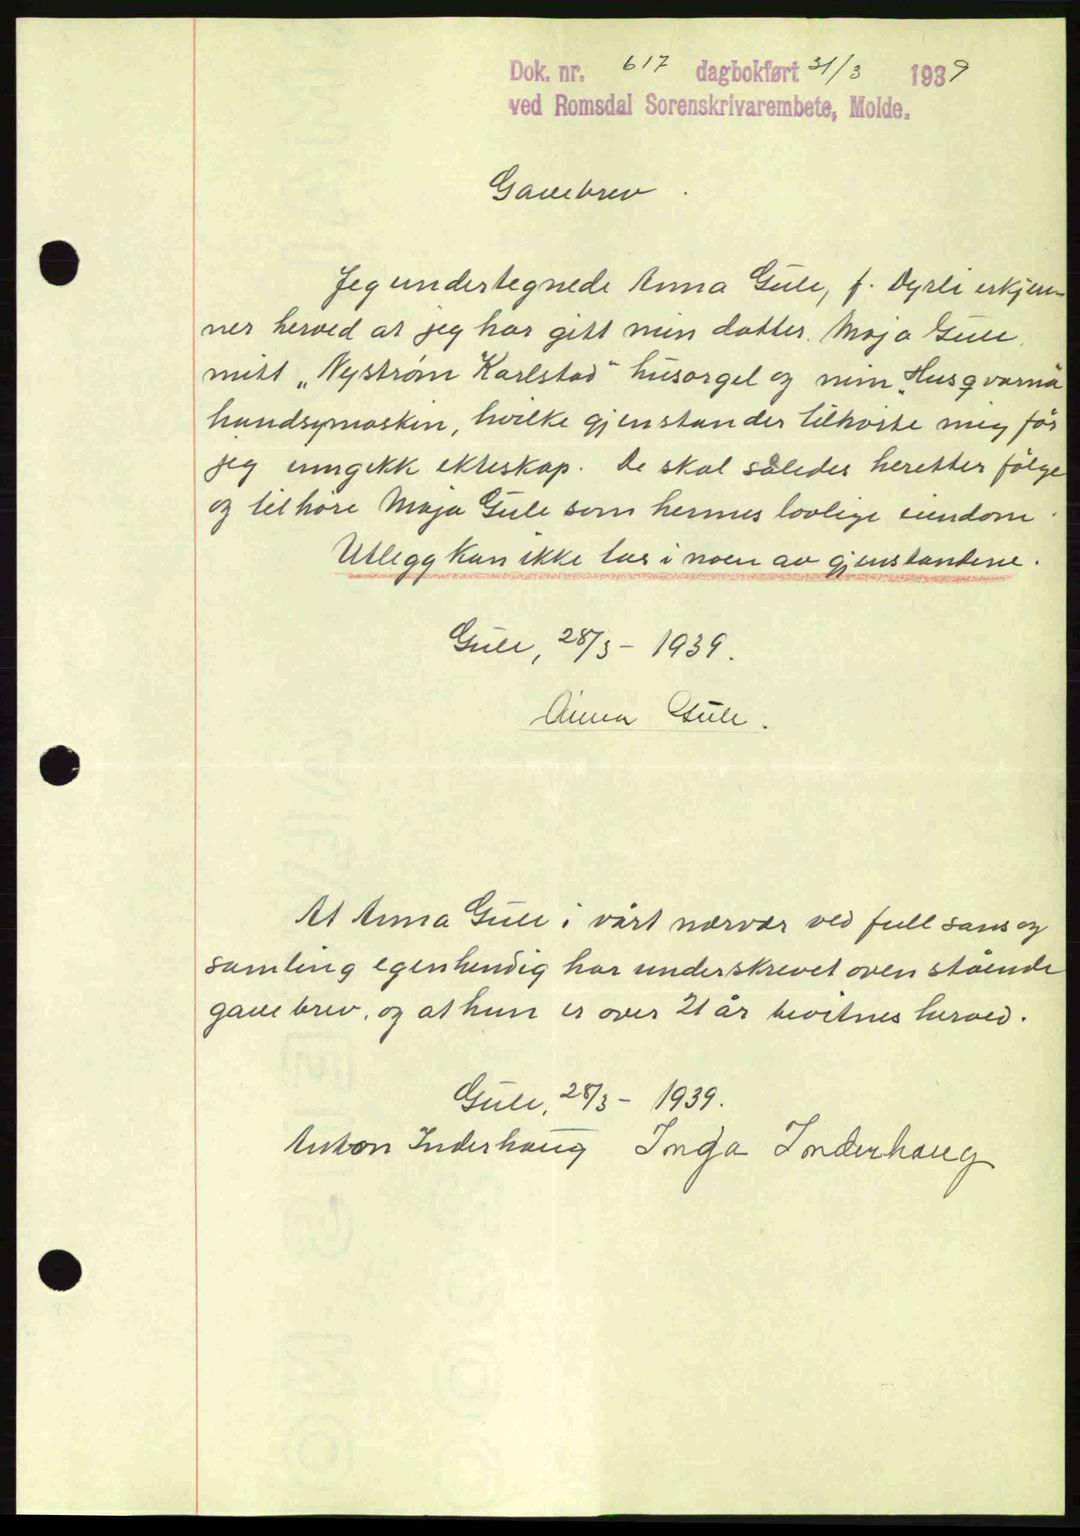 Dok. nr. 617 dagbokført 31/3 1939
ved Romsdal Sorenskrivarembete, Molde.
Gavebrev.
Jeg undertegnede Anna Gule, f. Dyrli erkjen-
ner herved at jeg har gitt min datter. Maja Gule,
mitt „Nystrøm Karlstad" husorgel og min „Husqvarna
handsymaskin, hvilke gjenstander tilhørte meg før
jeg inngikk ekteskap. De skal således heretter følge
og tilhøre Maja Gule som hennes lovlige eiendom.
Utlegg kan ikke tas i noen av gjenstandene.
Gule, 28/3 - 1939.
Anna Gule.
At Anna Gule i vårt nærvær ved full sans og
samling egenhendig har underskrevet oven stående
gavebrev, og at hun er over 21 år bevitnes herved.
Gule, 28/3 - 1939.
Anton Inderhaug Inga Inderhaug